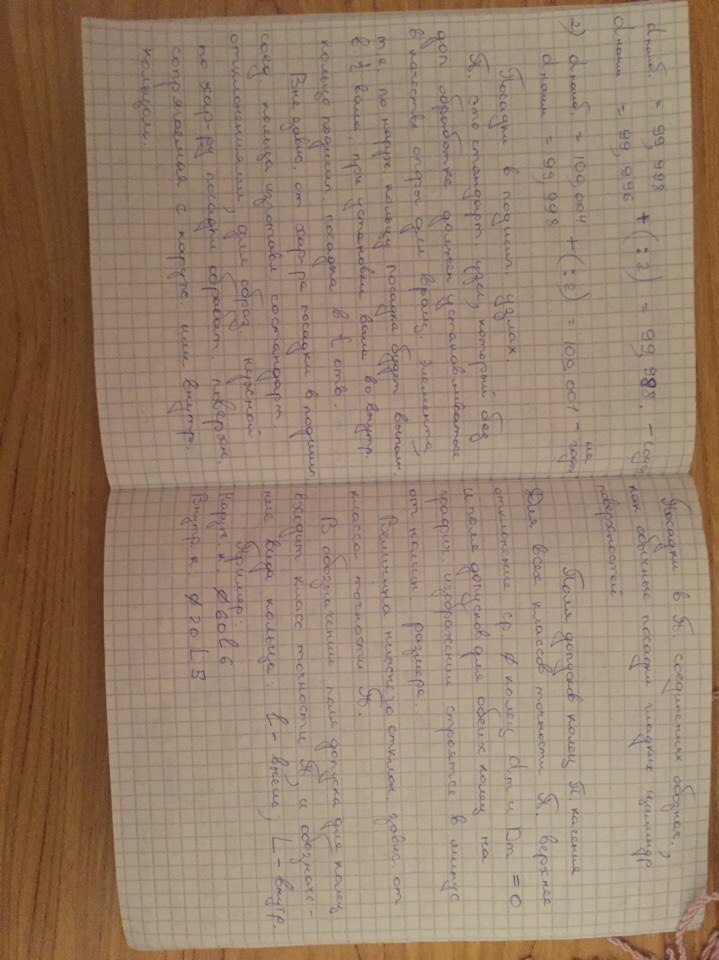 dнаиб. = 99,998
dнаим. = 99,996 + (:2) = 99,998. - годн
2) dнаиб. = 100,004
dнаим = 99,998 + (:2) = 100,001 - не годн
Посадки в подшипн. узлах.
П. это стандарт. узел, который без
доп. обработке должен устанавливаться
в качестве опоры для вращ. элемента,
т.е. по наруж. кольцу посадка будет выполн.
в t вала, при установки вала во внутр.
кольцо подшип. посадка в t отв.
Вне завис. от хар-ра посадки в подшип
соед. кольца изготавл. со стандарт.
отклонениями, для образ. нужной
по хар-ру посадки обрабат. поверхн.
сопрягаемая с наруж. или внутр.
кольцом.
Посадки в П. соединениях обознач,
как обычные посадки гладких цилиндр
поверхностей
Поля допусков колец П. качения
Для всех классов точности П. верхнее
отклонение ср. ø колец dm и Dm = 0
и поле допусков для обеих колец на
графич. изображении строятся в минус
от номин. размера.
Величина нижнего отклон. завис. от
класса точности П.
В обозначении поля допуска для колец
входит класс точности П, и обозначе-
ние вида кольца: l - внеш, L - внутр.
Пример:
Наруж. к. ø60l6
Внутр. к. ø20L5